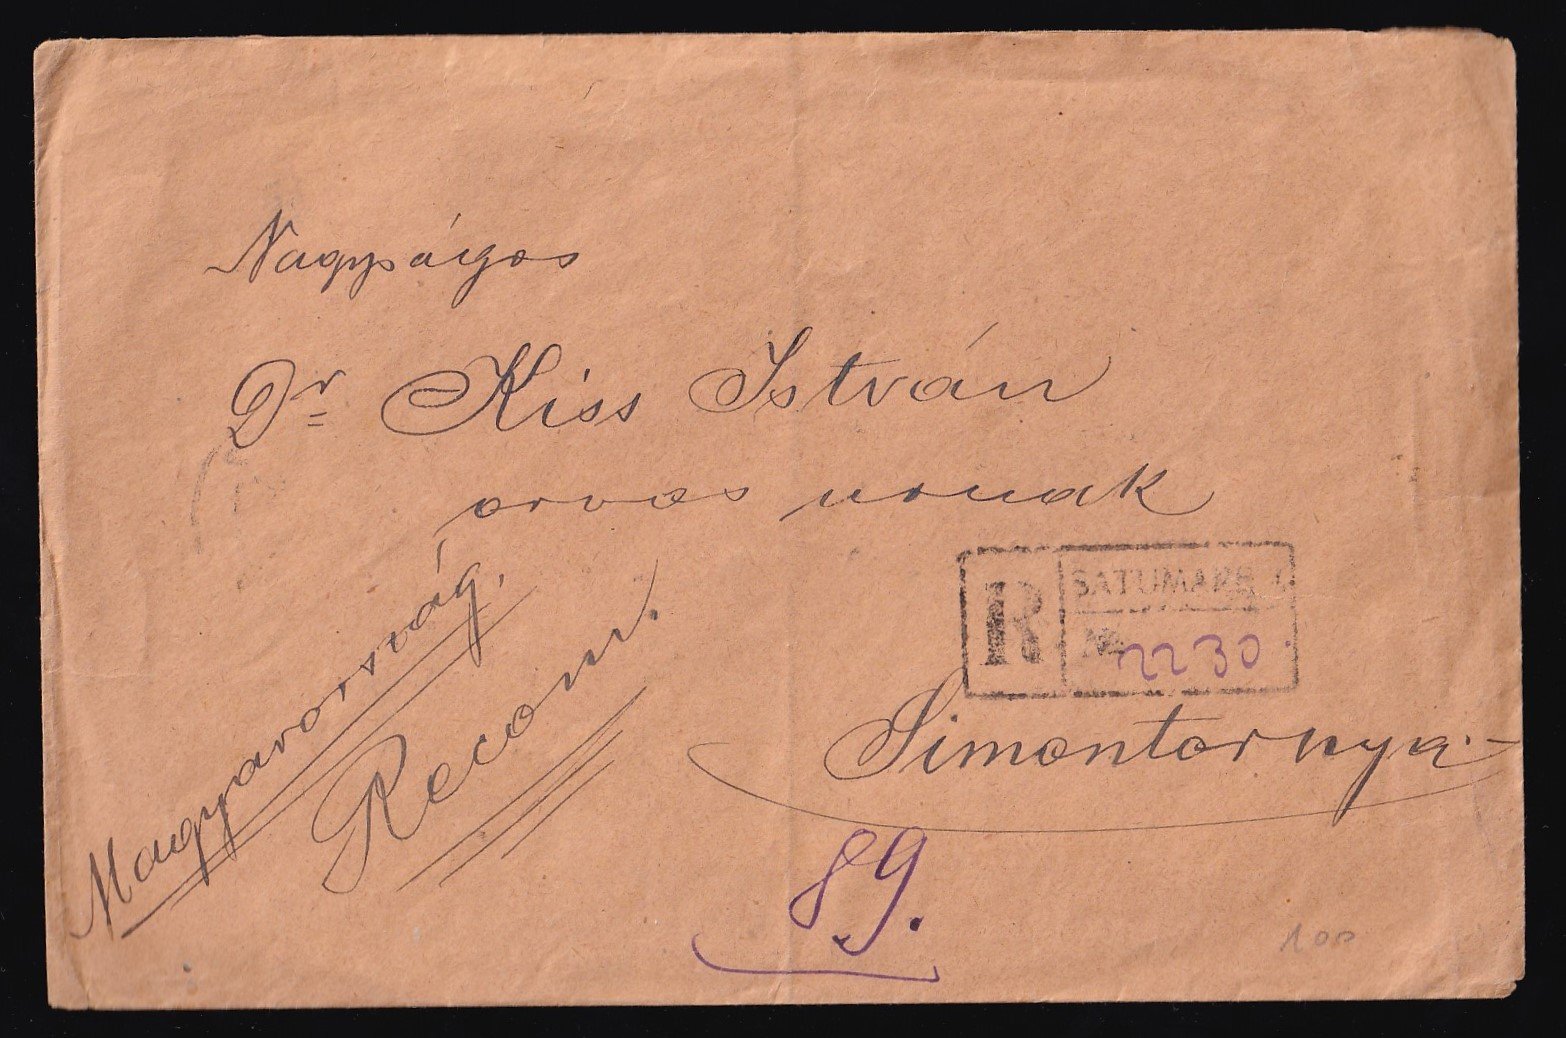 Nagyságos
Dr Kiss István
orvos urnak
Magyarország.
Recom.
R
SATUMARE 1.
No 2230.
Simontornya.-
89.
100